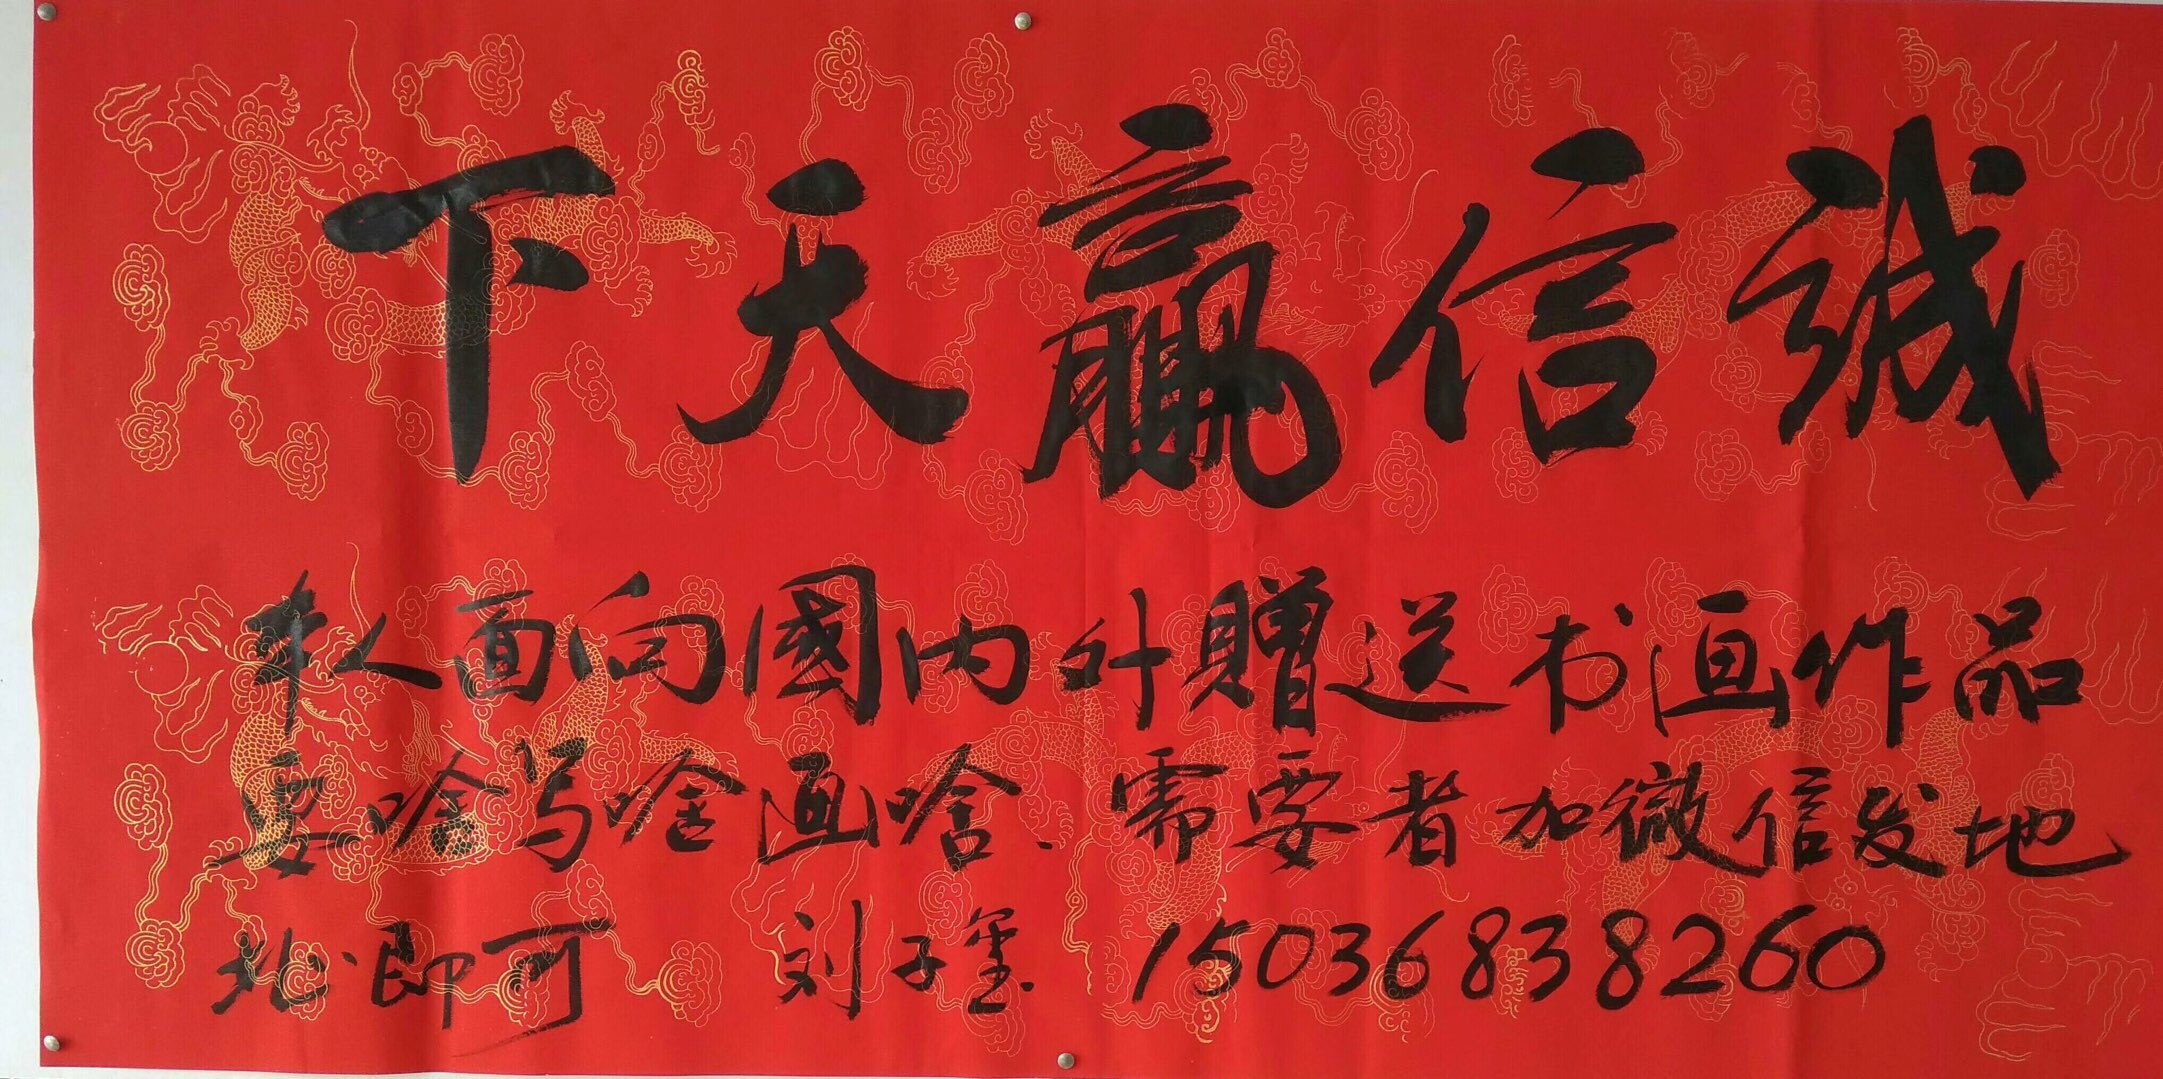 誠信赢天下
本人面向國内外贈送书画作品
要啥写啥画啥.需要者加微信发地
址即可 刘子玺 15036838260